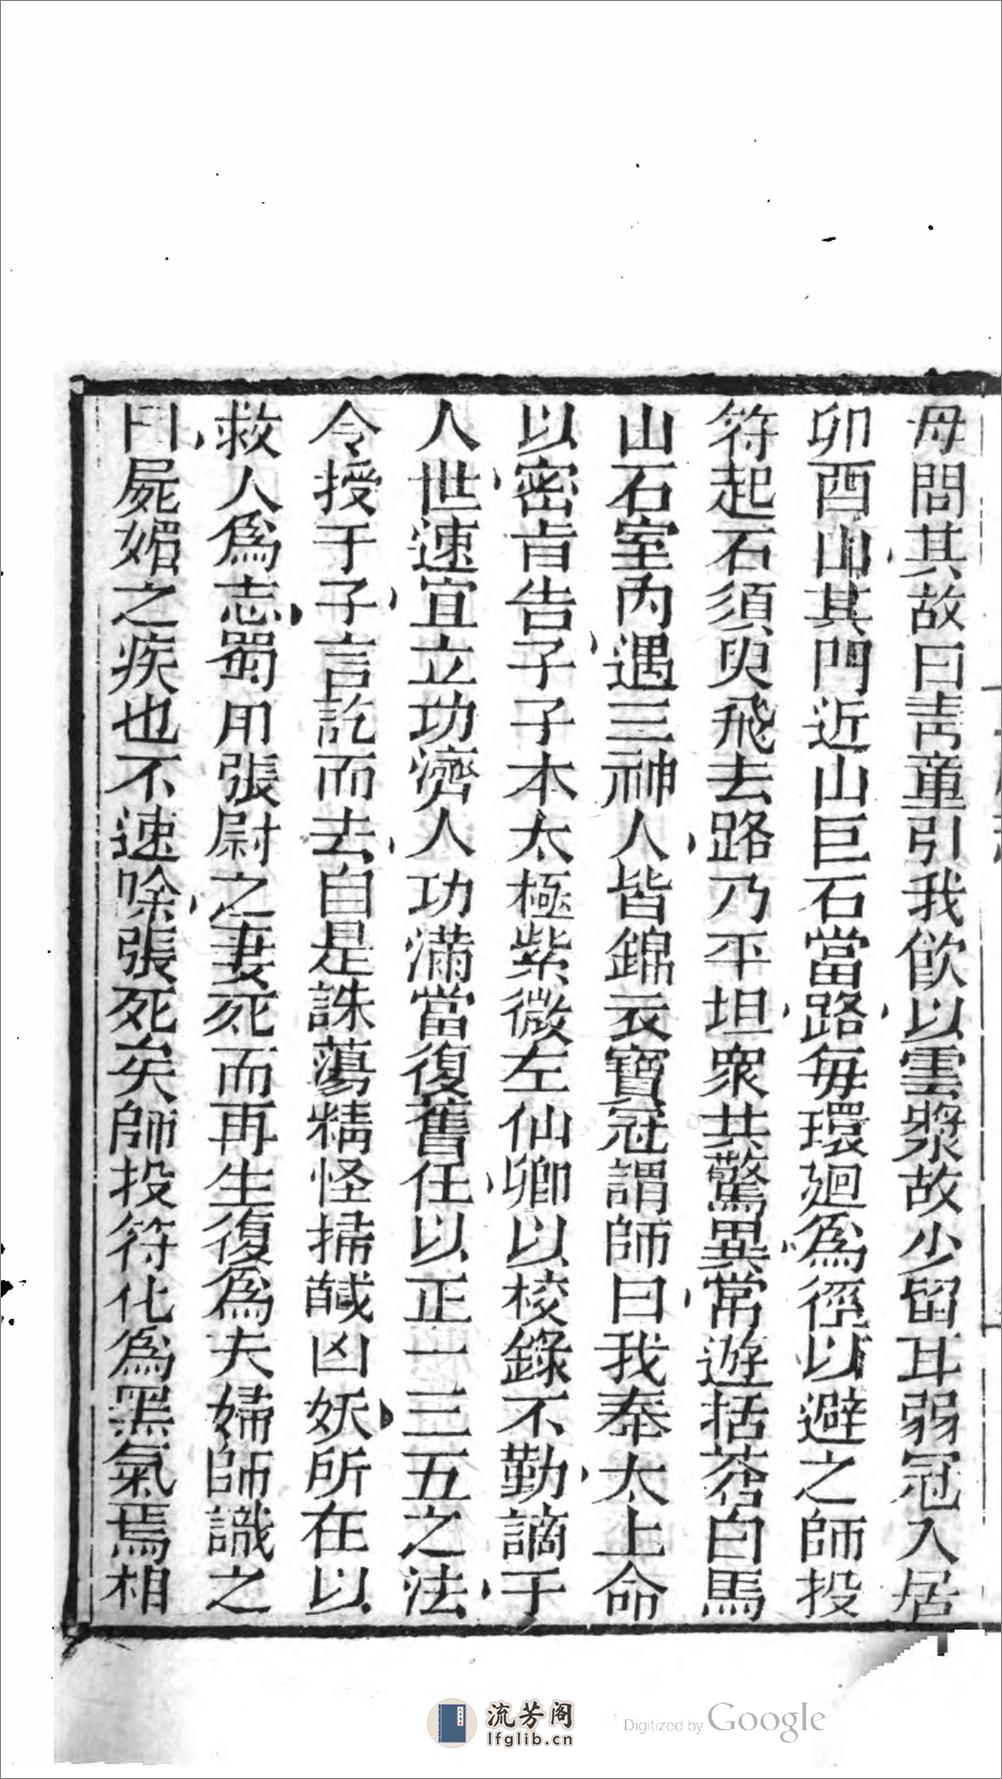 母問其故曰青童引我飮以雲漿故少留耳弱冠入居
卯酉山其門近山巨石當路每環廻爲徑以避之師投
符起石須臾飛去路乃平坦衆共驚異常遊括蒼白馬
山石室內遇三神人皆錦衣寶冠謂師曰我奉太上命
以密旨告子子本太極紫微左仙卿以校錄不勤謫于
人世速宜立功濟人功滿當復舊任以正一三五之法
令授于子言訖而去自是誅蕩精怪掃馘凶妖所在以
救人爲志蜀川張尉之妻死而再生復爲夫婦師識之
曰屍媚之疾也不速除張死矣師投符化爲黑氣焉相
流芳阁
lfglib.cn
Digitized by Google